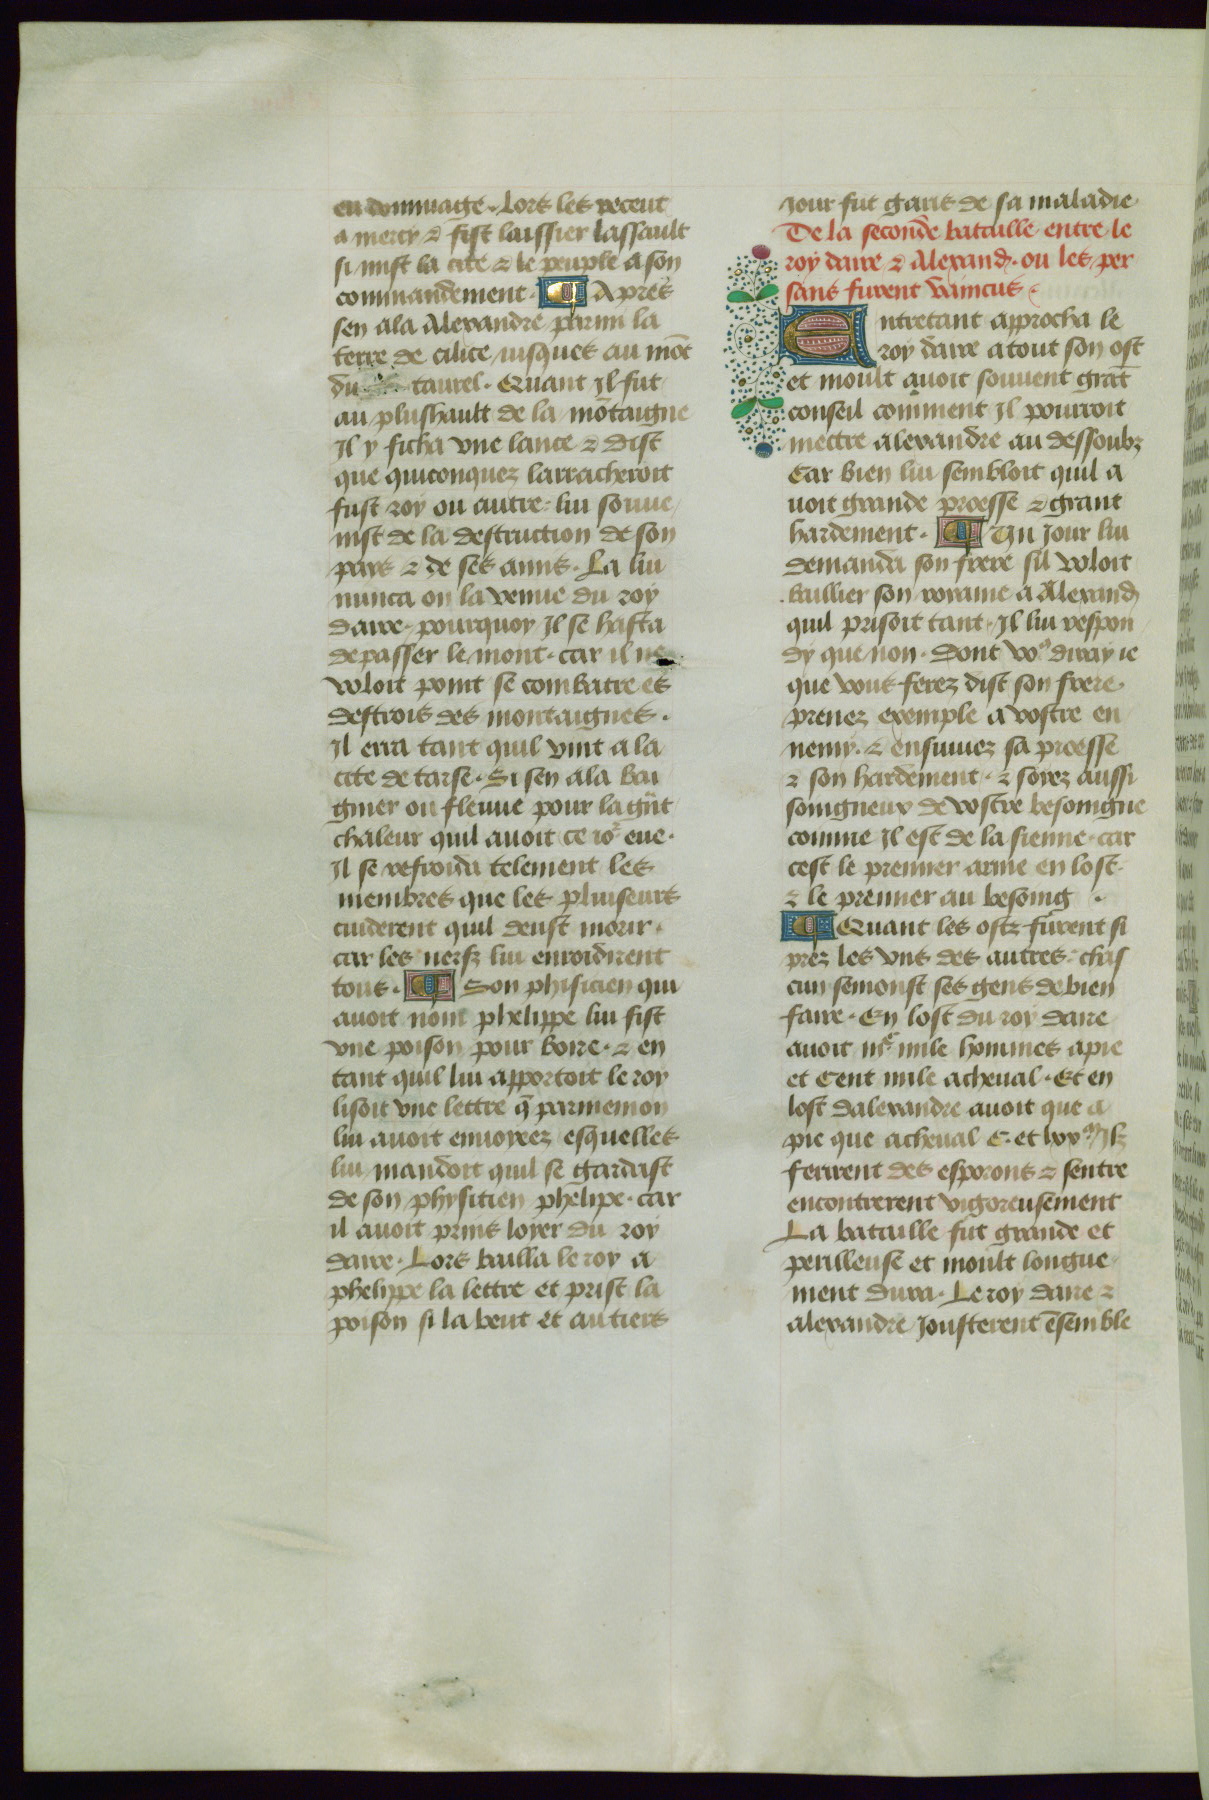 en dommage. Lors les receut
a mercy ⁊ fist laissier lassault
si mist la cite ⁊ le peuple a son
commandement. ¶ Apres
sen ala Alexandre parmi la
terre de cilice iusques au mōt
du taurel. Quant Jl fut
au plushault de la mōtaigne
Jl y ficha vne lance ⁊ dist
que quiconquez larracheroit
fust roy ou autre. lui souue
nist de la destruction de son
pays ⁊ de ses amis. La lui
nunca on la venue du roy
daire. pourquoy Jl se hasta
de passer le mont. car il ne
voloit point se combatre es
destrois des montaignes.
Jl erra tant quil vint a la
cite de tarse. Si sen ala bai
gnier ou fleuue pour la gr̄t
chaleur quil auoit ce ior eue.
Jl se refroida telement les
membres que les pluiseurs
cuiderent quil deust morir.
car les nerfz lui enroidirent
tous. ¶ Son phisicien qui
auoit nom phelippe lui fist
vne poison pour boire. ⁊ en
tant quil lui apportoit le roy
lisoit vne lettre q̄ parmenion
lui auoit enuoyeez esquelles
lui mandoit quil se gardast
de son physicien phelipe. car
il auoit prins loyer du roy
daire. Lors bailla le roy a
phelippe la lettre et prist la
poison si la beut et au tiers
Jour fut garis de sa maladie
De la seconde bataille entre le
roy daire ⁊ Alexand. ou les per
sans furent vaincus.
Entretant approcha le
roy daire atout son ost
et moult auoit souuent grāt
conseil cōmment Jl pourroit
mettre alexandre au dessoubz
Car bien lui sembloit quil a
uoit grande proesse ⁊ grant
hardement. ¶ Un Jour lui
demanda son frere sil voloit
baillier son royaume a Alexand
quil prisoit tant. Jl lui respon
dy que non. Dont vo⁹ diray ie
que vous ferez dist son frere
prenez exemple a vostre en
nemy. ⁊ ensuiuez sa proesse
⁊ son hardement. ⁊ soyez aussi
soingneux de vostre besoingne
comme Jl est de la sienne. car
cest le premier arme en lost.
⁊ le premier au besoing.
¶ Quant les ostz furent si
prez les vns des autres. chas
cun semonst ses gens de bien
faire. En lost du roy daire
auoit iiiᶜ mile hommes apie
et Cent mile acheual. Et en
lost dalexandre auoit que a
pie que acheual C. et lxvᵐ Jlz
ferirent des esporons ⁊ sentre
encontrerent vigoreusement
La bataille fut grande et
perilleuse et moult longue
ment dura. Le roy daire ⁊
alexandre Jousterent ēsemble